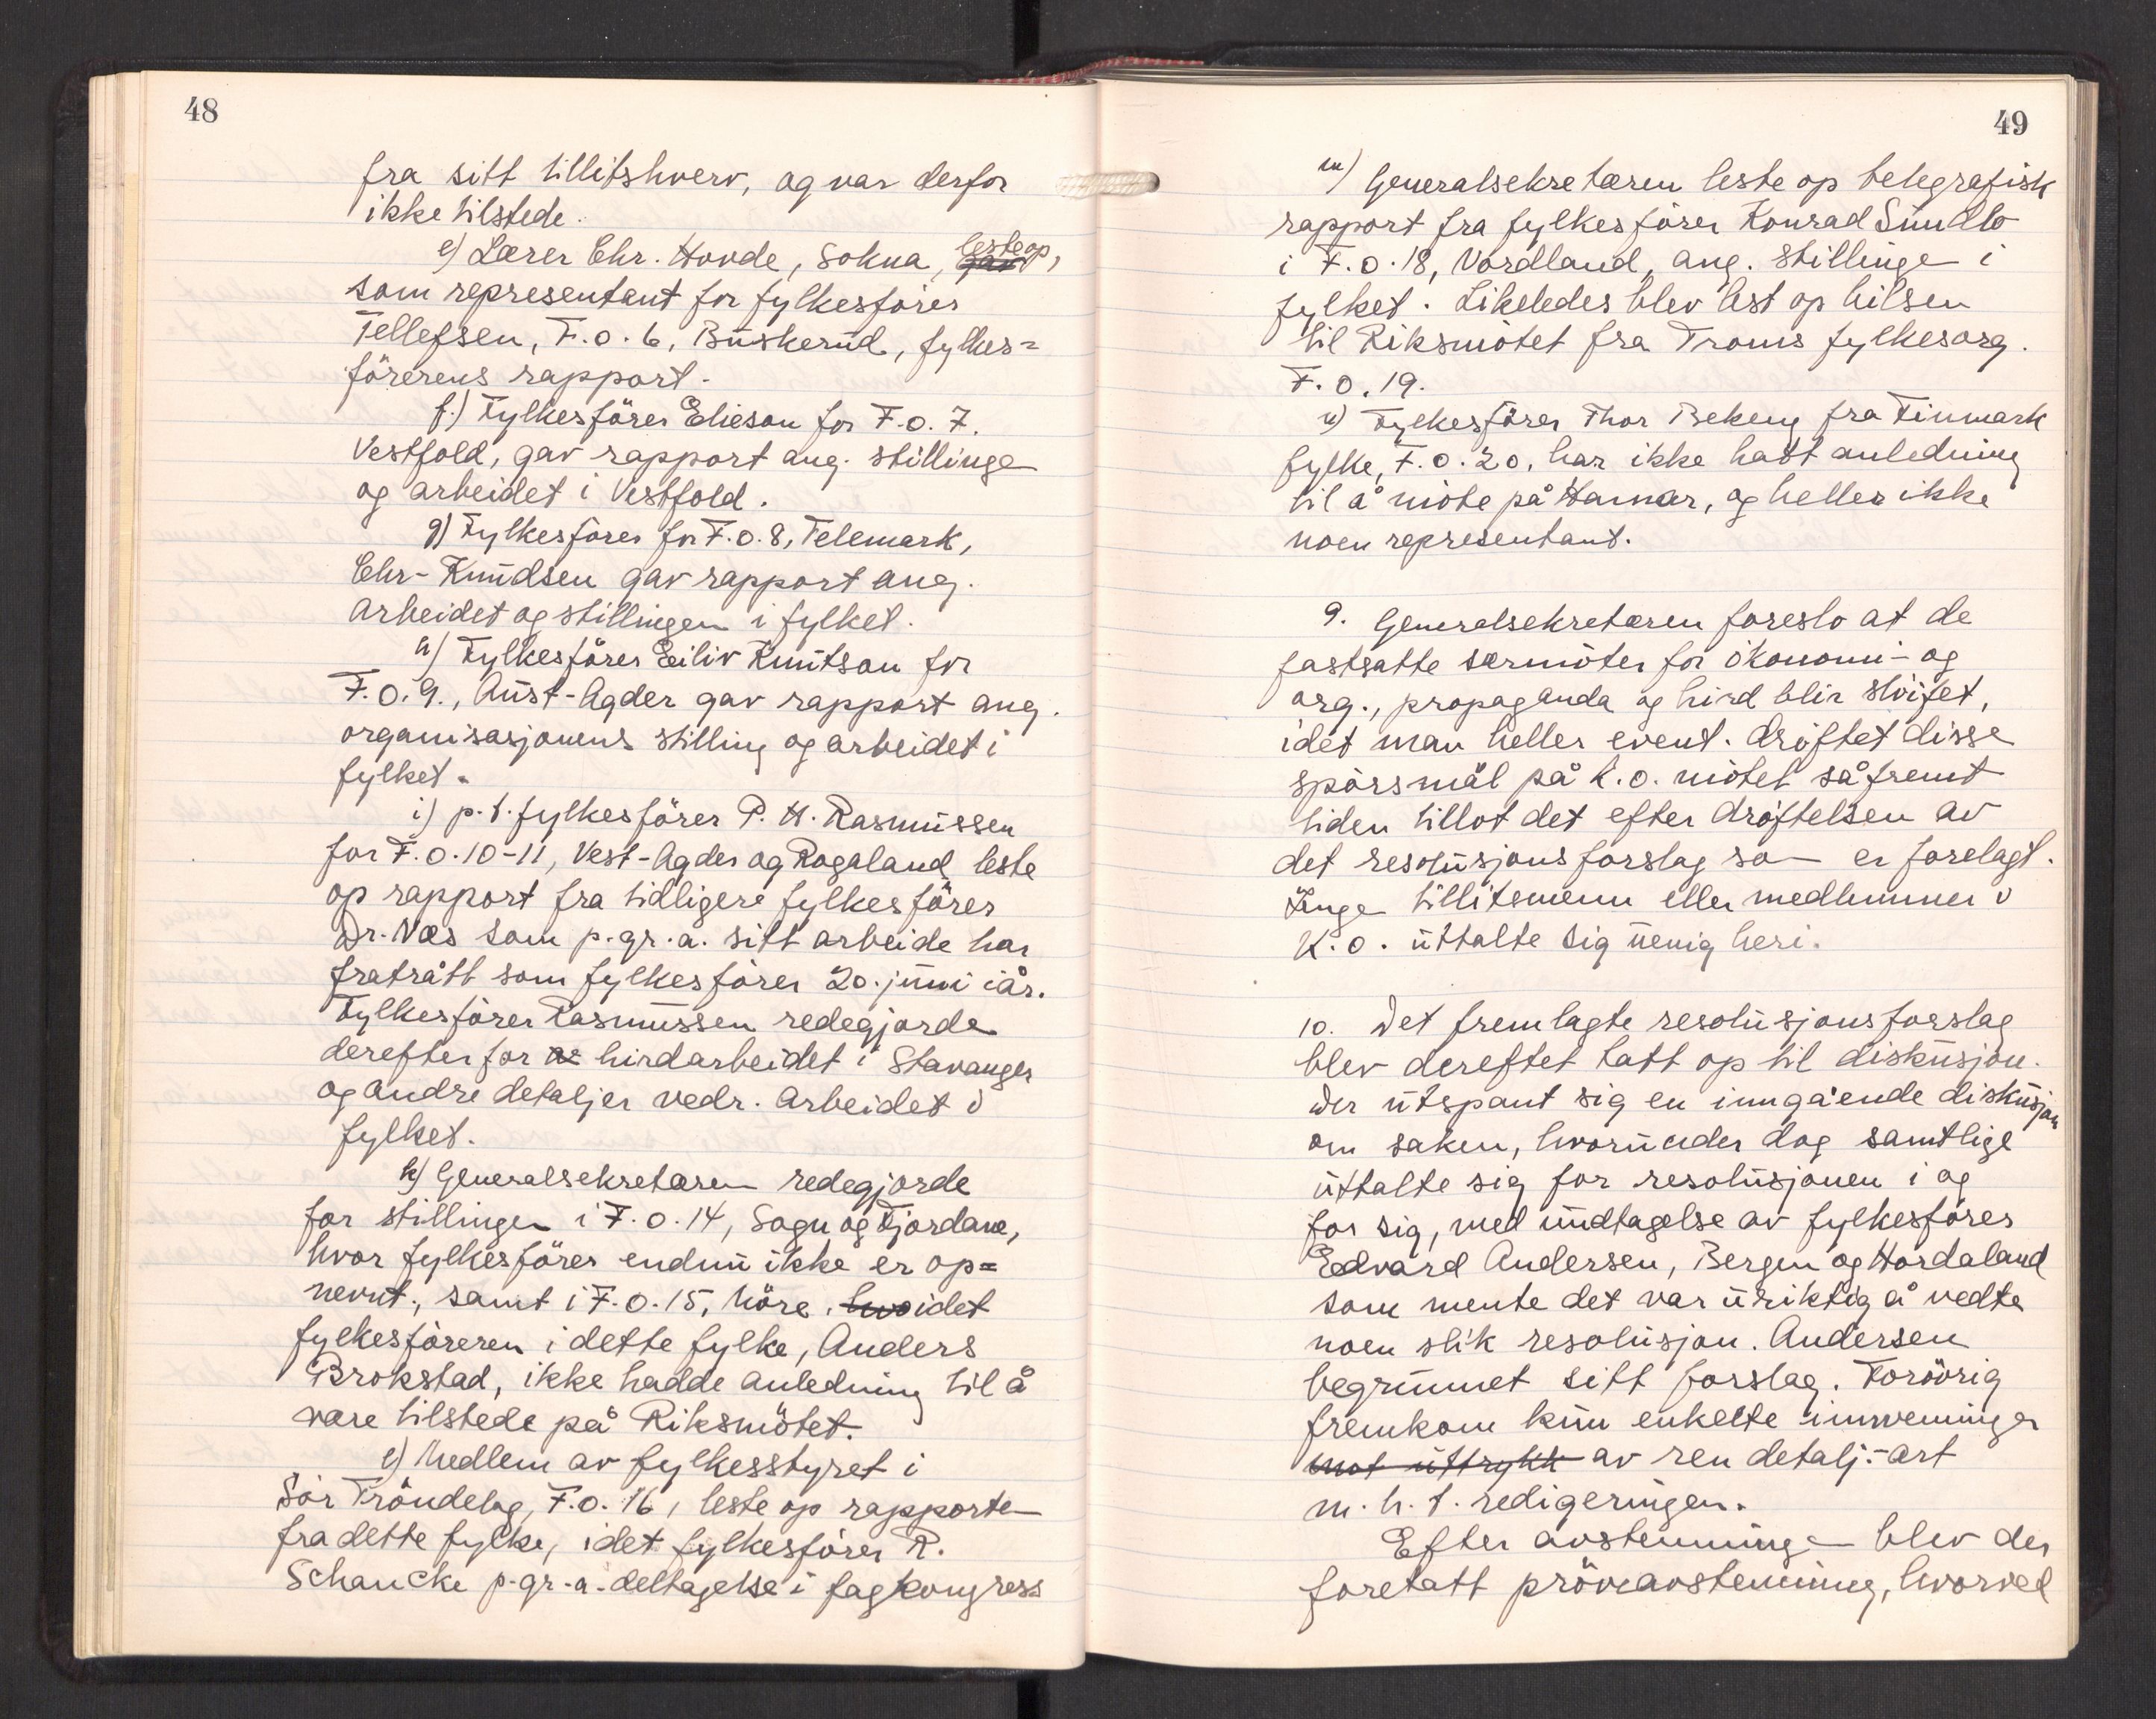 48
fra sitt tillitshverv, og var derfor
ikke tilstede.
e) Lærer Chr. Hovde, Sokna, leste op,
som representant for fylkesförer
Tellefsen, F.O. 6, Buskerud, fylkes=
förerens rapport.
f.) Fylkesförer Elieson for F.O. 7.
Vestfold, gav rapport ang. stillingen
og arbeidet i Vestfold.
g) Fylkesförer for F.O. 8, Telemark,
Chr. Knudsen gav rapport ang.
arbeidet og stillingen i fylket.
h) Fylkesförer Eiliv Knutson for
F.O. 9., Aust-Agder gav rapport ang.
organisasjonens stilling og arbeidet i
fylket.
i) p.t. fylkesförer P. H. Rasmussen
for F.O. 10-11, Vest-Agder og Rogaland leste
op rapport fra tidligere fylkesförer
Dr. Næs som p.gr.a. sitt arbeide har
fratrått som fylkesförer 20. juni iår.
Fylkesförer Rasmussen redegjorde
derefter for hirdarbeidet i Stavanger
og andre detaljer vedr. arbeidet i
fylket.
k) Generalsekretæren redegjorde
for stillingen i F.O. 14, Sogn og Fjordane,
hvor fylkesförer endnu ikke er op=
nevnt, samt i F.O. 15, Möre, idet
fylkesföreren i dette fylke, Anders
Brokstad, ikke hadde anledning til å
være tilstede på Riksmötet.
l) Medlem av fylkesstyret i
Sör Tröndelag, F.O. 16, leste op rapporten
fra dette fylke, idet fylkesförer R.
Schancke p.gr.a. deltagelse i fagkongress
49
m) Generalsekretæren leste op telegrafisk
rapport fra fylkesförer Konrad Sundlo
i F.O. 18, Nordland, ang. stillingen i
fylket. Likeledes blev lest op hilsen
til Riksmötet fra Troms fylkesorg.
F.O. 19.
n) Fylkesförer Thor Bekeng fra Finmark
fylke, F.O. 20, har ikke hatt anledning
til å möte på Hamar, og heller ikke
noen representant.
9. Generalsekretæren foreslo at de
fastsatte særmöter for ökonomi- og
org., propaganda og hird blir slöifet,
idet man heller event. dröftet disse
spörsmål på K.O. mötet såfremt
tiden tillot det efter dröftelsen av
det resolusjonsforslag som er forelagt.
Inge tillitsmenn eller medlemmer i
K.O. uttalte sig uenig heri.
10. Det fremlagte resolusjonsforslag
blev dereftet tatt op til diskusjon.
Der utspant sig en inngående diskusjon
om saken, hvorunder dog samtlige
uttalte sig for resolusjonen i og
for sig, med undtagelse av fylkesförer
Edvard Andersen, Bergen og Hordaland
som mente det var uriktig å vedta
noen slik resolusjon. Andersen
begrunnet sitt forslag. Forövrig
fremkom kun enkelte innvendinger
mot uttrykk av ren detalj-art
m.h.t. redigeringen.
Efter avstemningen blev der
foretatt pröveavstemning, hvorved